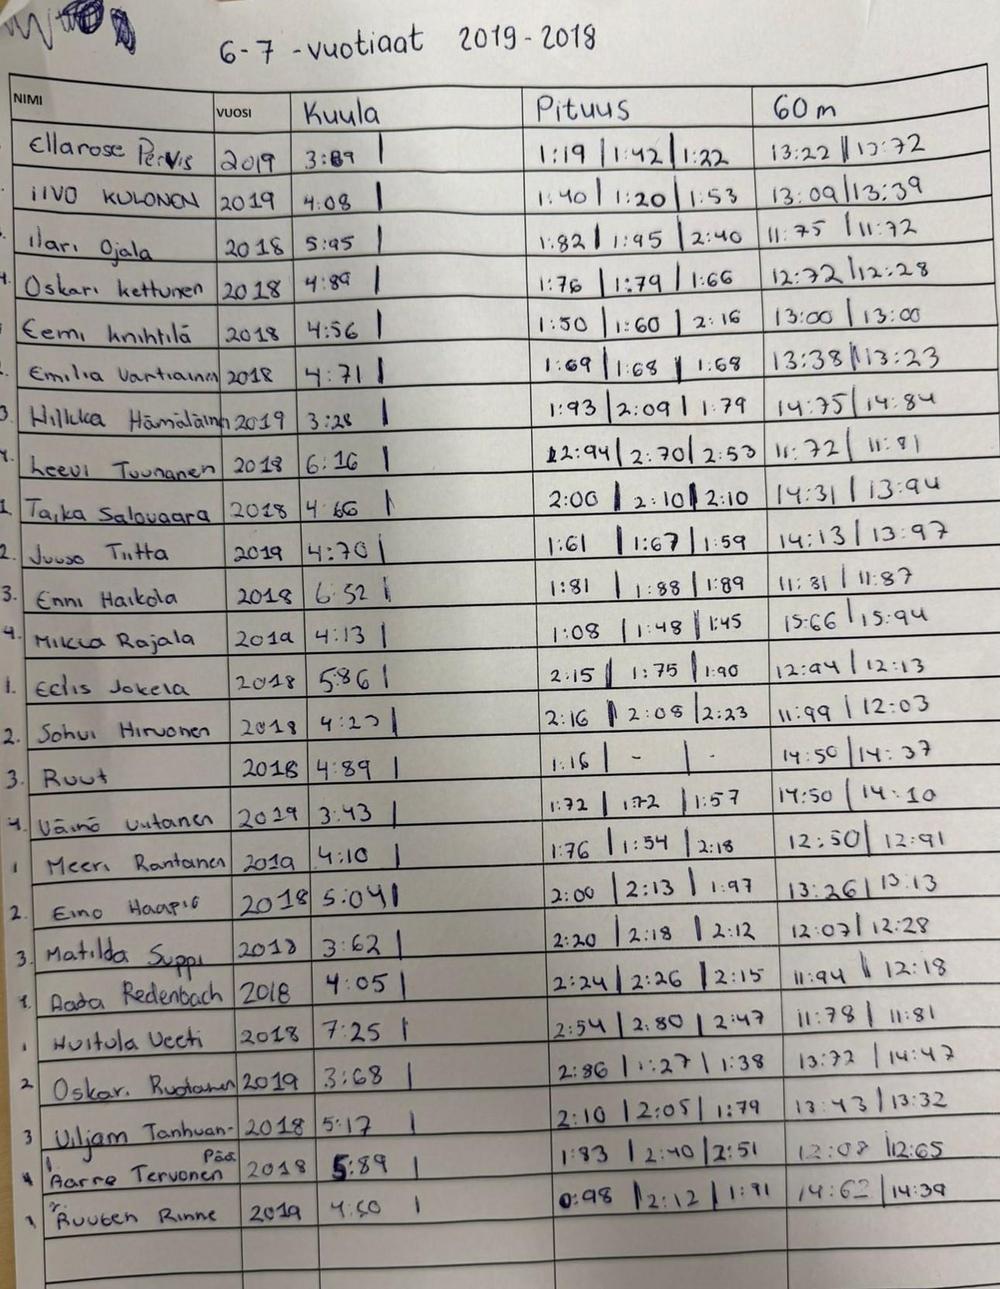 6-7 -vuotiaat 2019-2018
NIMI VUOSI Kuula Pituus 60 m
Ellarose Pervis 2019 3:89 | 1:19 | 1:42 | 1:22 13:22 || 13:72
IIVO KULONEN 2019 4:08 | 1:40 | 1:20 | 1:53 13:09 | 13:39
Ilari Ojala 2018 5:95 | 1:82 | 1:95 | 2:40 11:75 | 11:72
4. Oskari Kettunen 2018 4:89 | 1:76 | 1:79 | 1:66 12:72 | 12:28
Eemi Knihtilä 2018 4:56 | 1:50 | 1:60 | 2:16 13:00 | 13:00
Emilia Vartiainen 2018 4:71 | 1:69 | 1:68 | 1:68 13:38 | 13:23
3 Hilkka Hämäläinen 2019 3:28 | 1:93 | 2:09 | 1:79 14:75 | 14:84
4. Leevi Tuunanen 2018 6:16 | 2:94 | 2:70 | 2:53 11:72 | 11:81
1. Taika Salovaara 2018 4:66 | 2:00 | 2:10 | 2:10 14:31 | 13:94
2. Juuso Tiitta 2019 4:70 | 1:61 | 1:67 | 1:59 14:13 | 13:97
3. Enni Haikola 2018 6:52 | 1:81 | 1:88 | 1:89 11:31 | 11:87
4. Rajala 2019 4:13 | 1:08 | 1:48 | 1:45 15:66 | 15:94
1. Jokela 2018 5:86 | 2:15 | 1:75 | 1:90 12:94 | 12:13
2. Sohvi Hirvonen 2018 | 2:16 | 2:08 | 2:23 11:99 | 12:03
3. Ruut 2018 4:89 | 1:16 | - | - 14:50 | 14:37
4. Väinö 2019 3:43 | 1:72 | 1:72 | 1:57 14:50 | 14:10
1 Meeri Rantanen 2019 4:10 | 1:76 | 1:54 | 2:18 12:50 | 12:91
2. Eino 2018 5:04 | 2:00 | 2:13 | 1:97 13:26 | 13:13
3. Matilda Suppi 2018 3:62 | 2:20 | 2:18 | 2:12 12:07 | 12:28
Aada Redenbach 2018 4:05 | 2:24 | 2:26 | 2:15 11:94 | 12:18
Huitula Veeti 2018 7:25 | 2:54 | 2:80 | 2:47 11:78 | 11:81
2 Oskari 2019 3:68 | 2:86 | 1:27 | 1:38 13:72 | 14:47
3 Viljam Tanhuan- 2018 5:17 | 2:10 | 2:05 | 1:79 13:43 | 13:32
pää
4 1. Aarre Tervonen 2018 5:89 | 1:83 | 2:40 | 2:51 12:08 | 12:65
2. Ruuben Rinne 2019 4:50 | 0:98 | 2:12 | 1:91 14:62 | 14:39